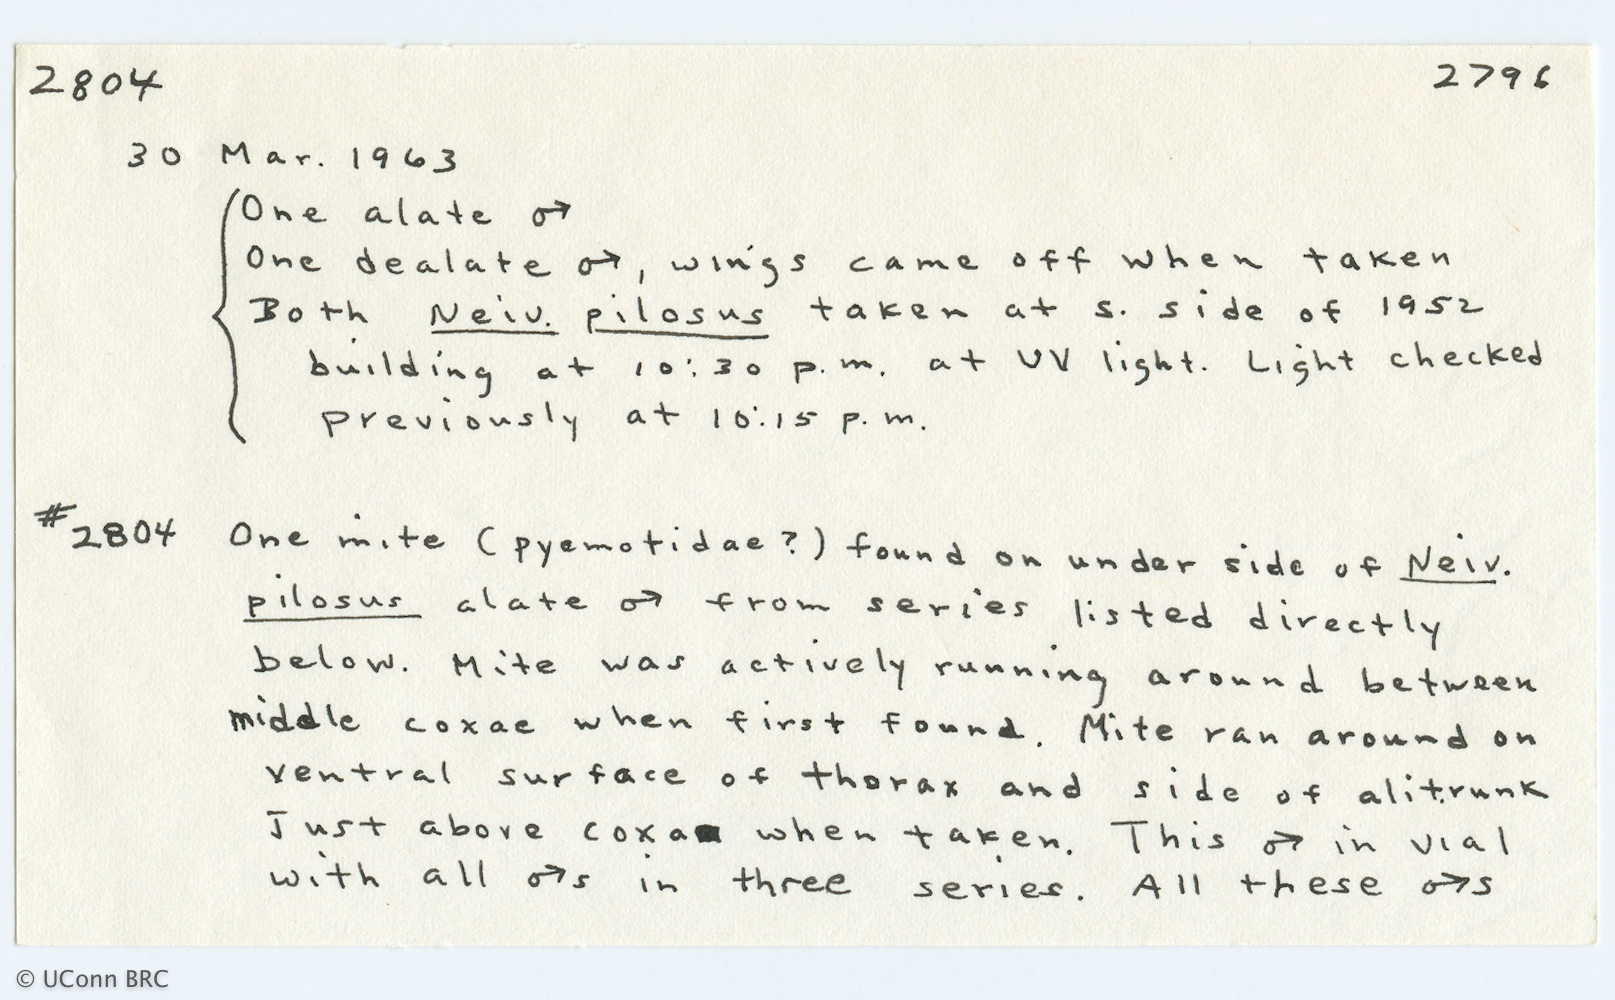 2804 2796
30 Mar. 1963
One alate ♂
One dealate ♂, wings came off when taken
Both Neiv. pilosus taken at s. side of 1952
building at 10:30 p.m. at UV light. Light checked
previously at 10:15 p.m.
#2804 One mite (pyemotidae?) found on under side of Neiv.
pilosus alate ♂ from series listed directly
below. Mite was actively running around between
middle coxae when first found. Mite ran around on
ventral surface of thorax and side of alitrunk
Just above coxa when taken. This ♂ in vial
with all ♂s in three series. All these ♂s
© UConn BRC